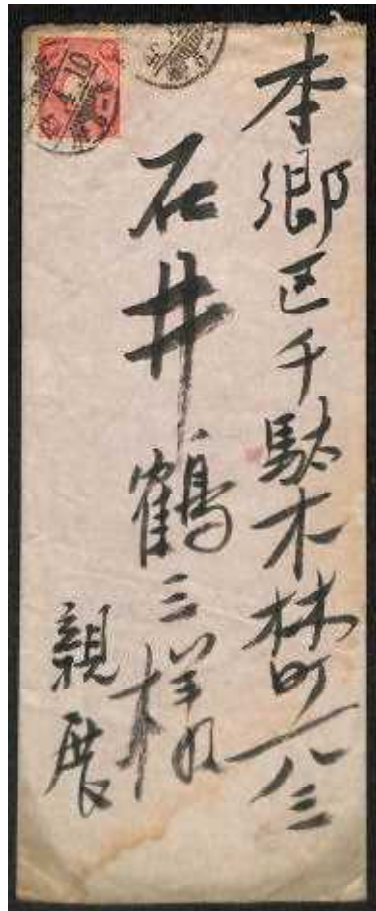 本郷区千駄木林町一八三
石井鶴三様
親展